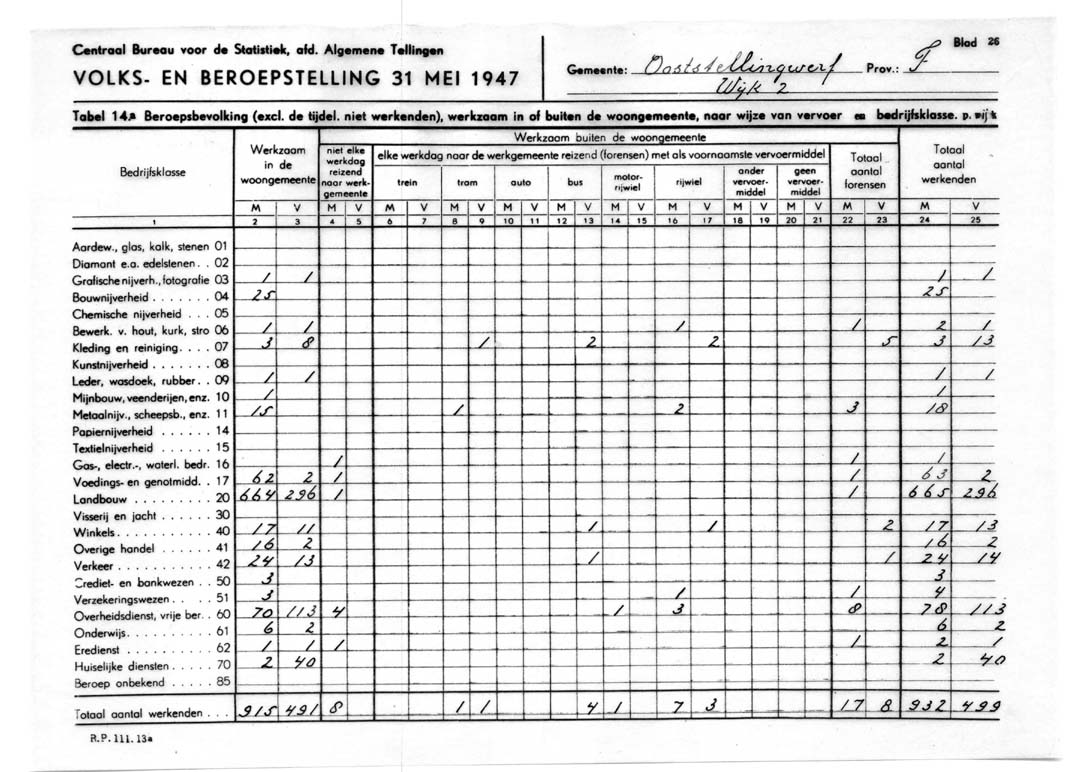 Centraal Bureau voor de Statistiek, afd. Algemene Tellingen
VOLKS- EN BEROEPSTELLING 31 MEI 1947
Gemeente: Ooststellingwerf Prov.: F Blad 26
Wijk 2
Tabel 14a Beroepsbevolking (excl. de tijdel. niet werkenden), werkzaam in of buiten de woongemeente, naar wijze van vervoer en bedrijfsklasse. p. wijk
Bedrijfsklasse
Werkzaam in de woongemeente
Werkzaam buiten de woongemeente
niet elke werkdag reizend naar werkgemeente
elke werkdag naar de werkgemeente reizend (forensen) met als voornaamste vervoermiddel
trein tram auto bus motorrijwiel rijwiel ander vervoermiddel geen vervoermiddel
Totaal aantal forensen
Totaal aantal werkenden
M V M V M V M V M V M V M V M V M V M V M V M V
1 2 3 4 5 6 7 8 9 10 11 12 13 14 15 16 17 18 19 20 21 22 23 24 25
Aardew., glas, kalk, stenen 01
Diamant e.a. edelstenen . . 02
Grafische nijverh., fotografie 03 1 1 1 1
Bouwnijverheid . . . . . . . 04 25 25
Chemische nijverheid . . . 05
Bewerk. v. hout, kurk, stro 06 1 1 1 1 2 1
Kleding en reiniging . . . . 07 3 8 1 2 2 5 3 13
Kunstnijverheid . . . . . . . 08
Leder, wasdoek, rubber . . 09 1 1 1 1
Mijnbouw, veenderijen, enz. 10 1 1
Metaalnijv., scheepsb., enz. 11 15 1 2 3 18
Papiernijverheid . . . . . . 14
Textielnijverheid . . . . . . 15
Gas-, electr.-, waterl. bedr. 16 1 1 1
Voedings- en genotmidd. . 17 62 2 1 1 63 2
Landbouw . . . . . . . . . 20 664 296 1 1 665 296
Visserij en jacht . . . . . . 30
Winkels . . . . . . . . . . . 40 17 11 1 1 2 17 13
Overige handel . . . . . . 41 16 2 16 2
Verkeer . . . . . . . . . . . 42 24 13 1 1 24 14
Crediet- en bankwezen . . 50 3 3
Verzekeringswezen . . . . 51 3 1 1 4
Overheidsdienst, vrije ber. . 60 70 113 4 1 3 8 78 113
Onderwijs . . . . . . . . . . 61 6 2 6 2
Eredienst . . . . . . . . . . 62 1 1 1 1 2 1
Huiselijke diensten . . . . . 70 2 40 2 40
Beroep onbekend . . . . . 85
Totaal aantal werkenden . . . 915 491 8 1 1 4 1 7 3 17 8 932 499
R.P. 111. 13a